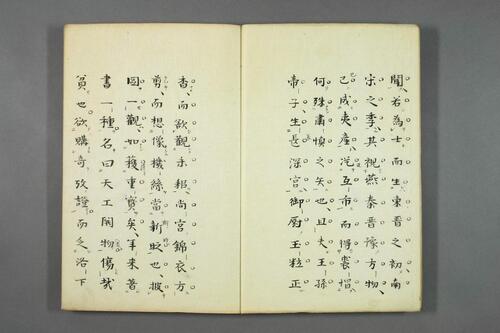 聞若為士而生東晉之初南
宋之季其視燕秦晉豫方物
已成夷產從互市而得裘帽
何殊肅慎之矢也且夫王孫
帝子生長深宮御厨玉粒正
香而欲觀耒耜尚宮錦衣方
剪而想像機絲當斯旹也披
圖一觀如獲重寳矣年來著
書一種名曰天工開物傷哉
貧也欲購奇攷證而乏洛下